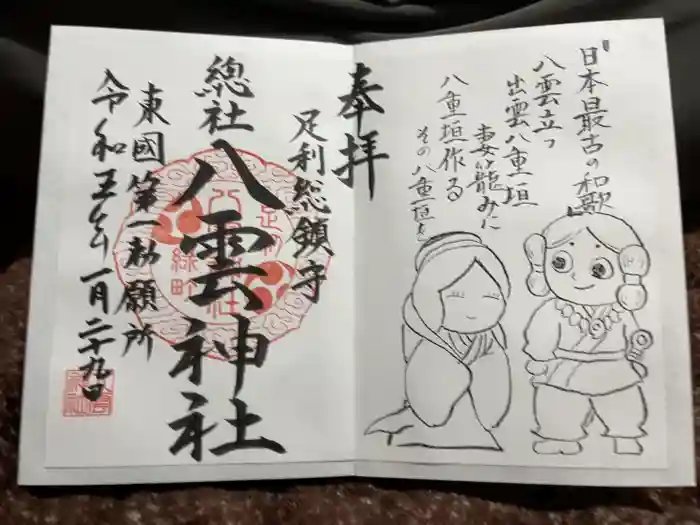 『日本最古の和歌』
八雲立つ
出雲八重垣
妻籠みに
八重垣作る
その八重垣を
奉拝
足利総鎮守
總社八雲神社
東國第一勅願所
令和五年一月二十九日
緑町